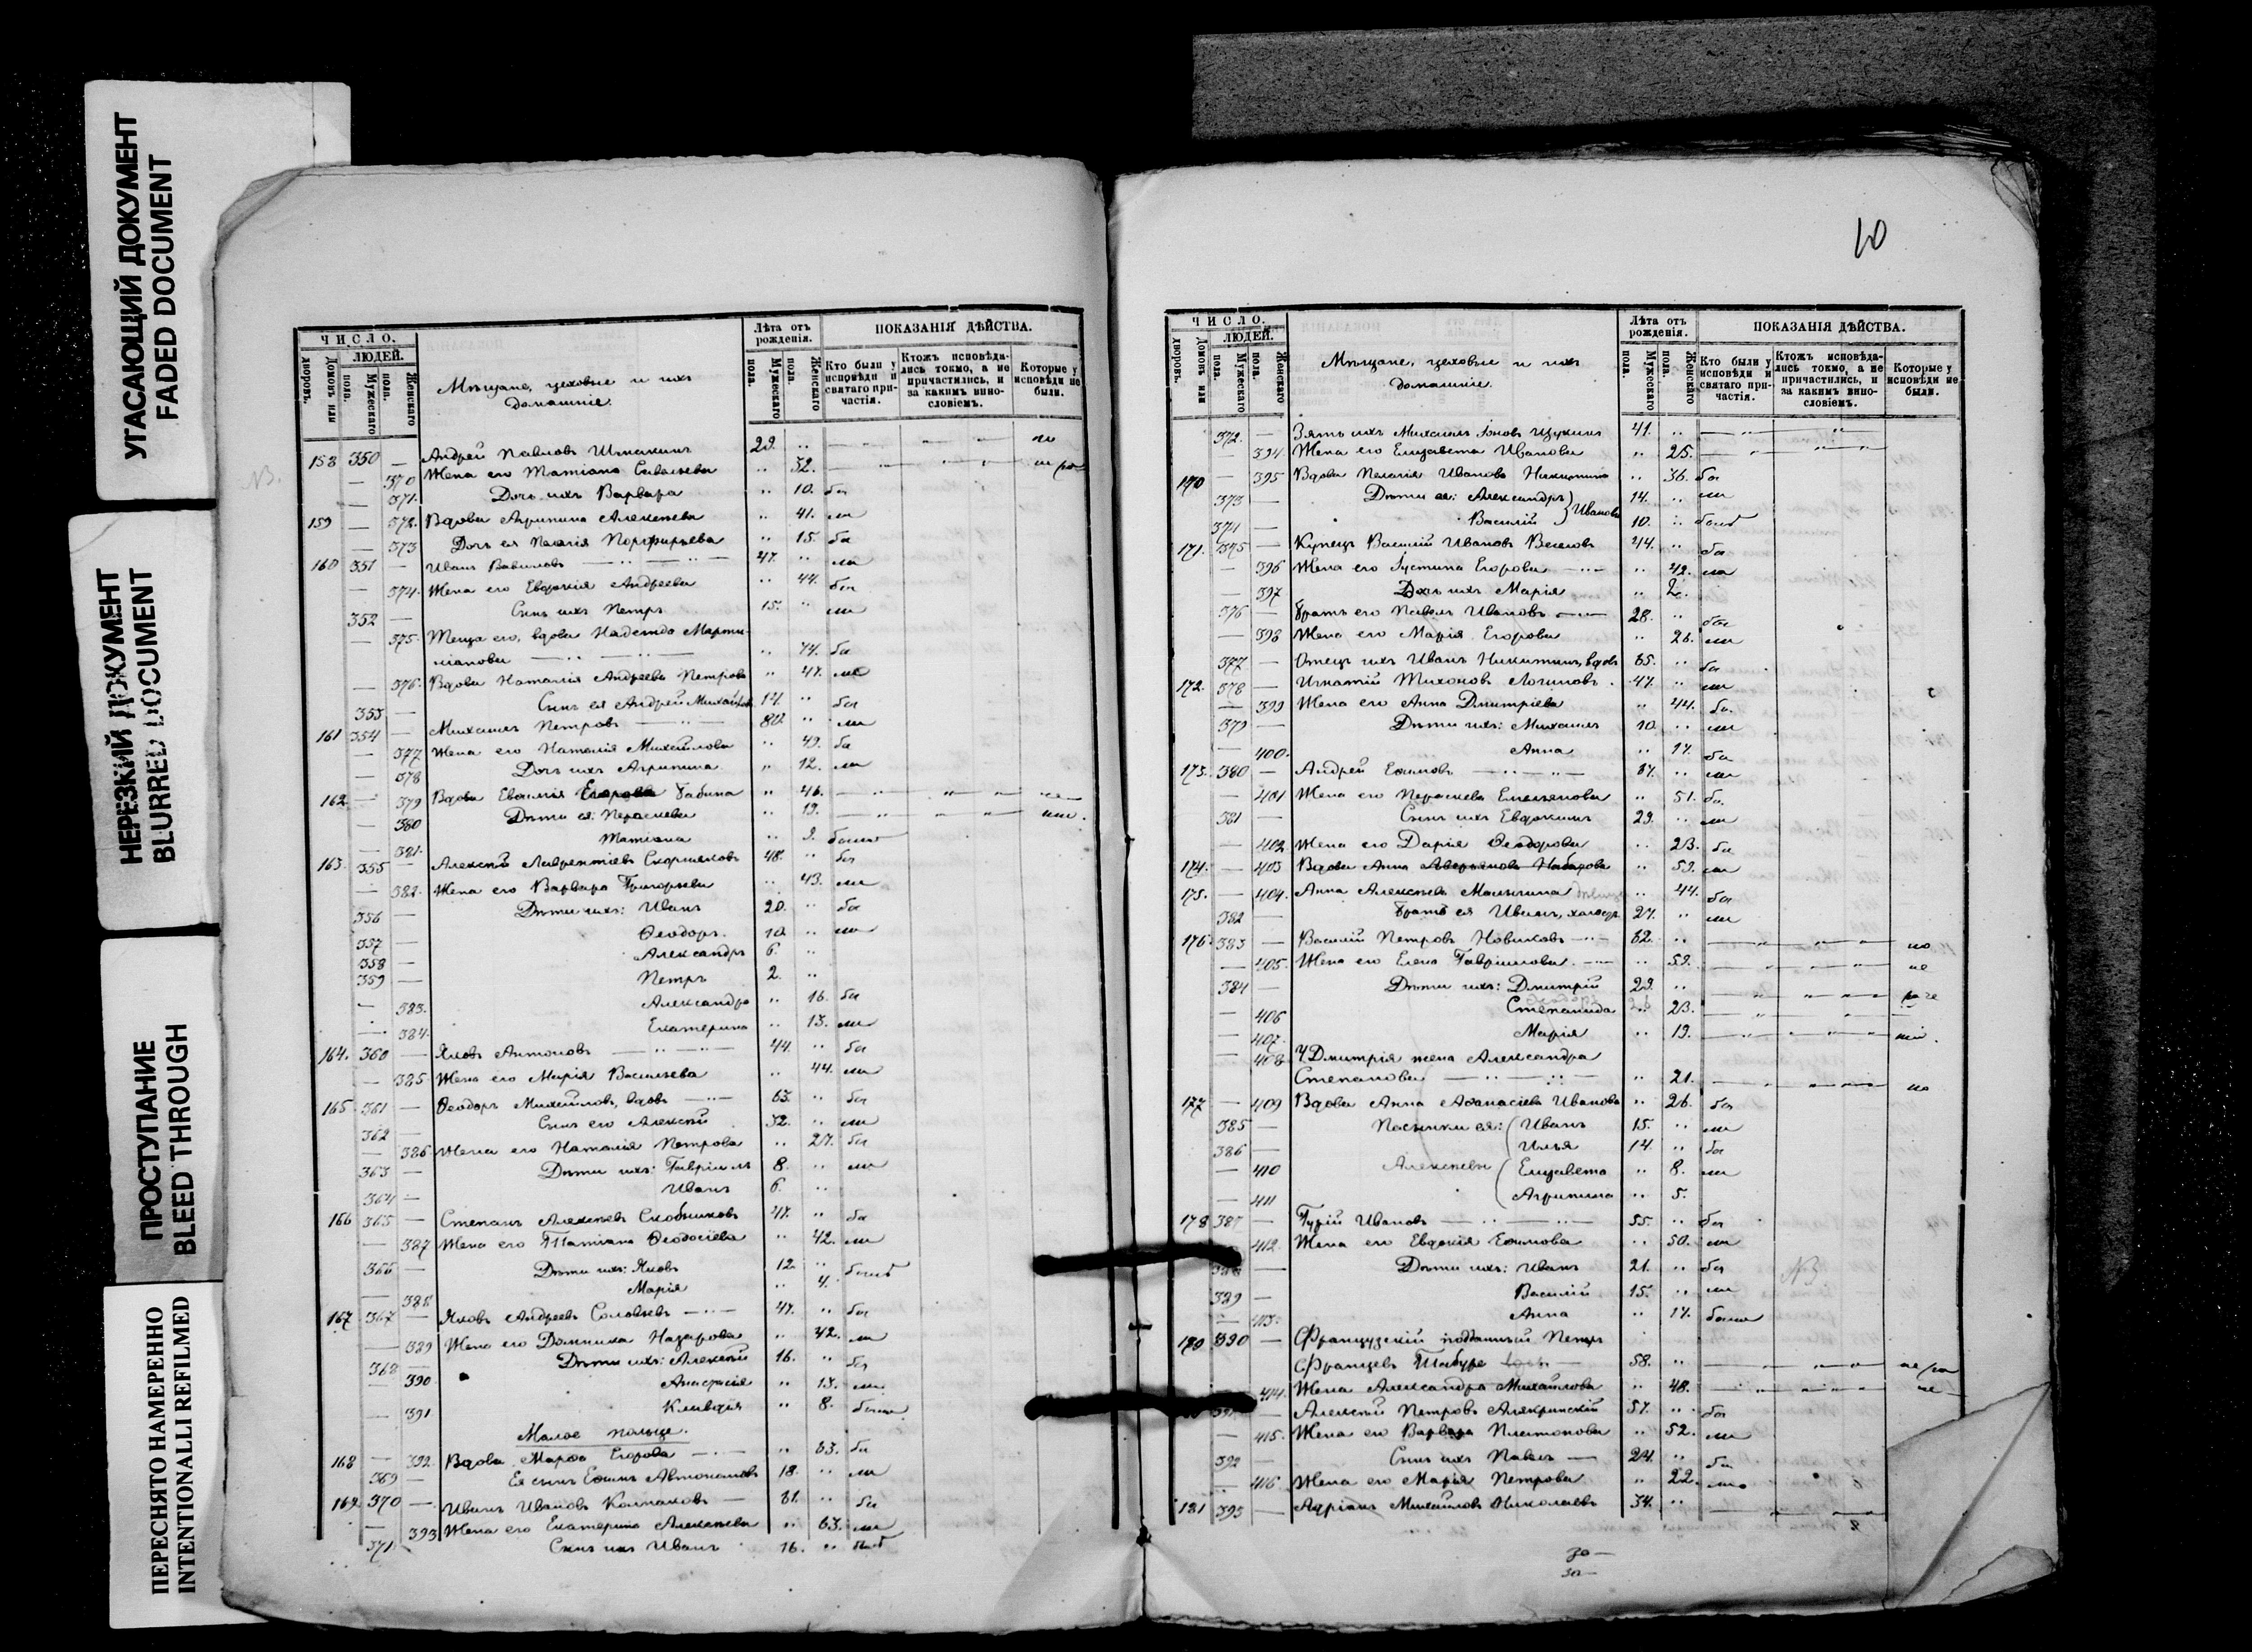 УГАСАЮЩИЙ ДОКУМЕНТ
FADED DOCUMENT
НЕРЕЗКИЙ ДОКУМЕНТ
BLURRED DOCUMENT
ПРОСТУПАНИЕ
BLEED THROUGH
ПЕРЕСНЯТО НАМЕРЕННО
INTENTIONALLI REFILMED
ЧИСЛО.
ЛЮДЕЙ.
Домовъ или дворовъ.
Мужескаго пола.
Женскаго пола.
Мѣщане, цеховые и ихъ домашніе.
Лѣта отъ рожденія.
Мужескаго пола.
Женскаго пола.
ПОКАЗАНІЯ ДѢЙСТВА.
Кто были у исповѣди и святаго причастія.
Ктожъ исповѣдались токмо, а не причастились, и за какимъ винословіемъ.
Которые у исповѣди не были.
158 350 — Андрей Павловъ 29. ..
— 370 Жена его Татіана Савельева .. 32.
— 371. Дочь ихъ Варвара .. 10. бы
159 — 372. Вдова Агрипина Алексѣева .. 41. ли
— 373 Дочь ея Пелагія Порфирьева .. 15. бы
160 351 — Иванъ Вавиловъ 47. .. ли
— 374. Жена его Евдокія Андреева .. 44. бы
352 — Сынъ ихъ Петръ 15. .. ли
— 375. Теща его, вдова Надежда Марти-
ніанова .. 74. бы
— 376. Вдова Наталія Андреева Петрова .. 47. ли
353 — Сынъ ея Андрей Михайловъ 17. .. бы
161 354 — Михаилъ Петровъ 80. .. ли
— 377 Жена его Наталія Михайлова .. 49. бы
— 378 Дочь ихъ Агрипина .. 12. ли
162 — 379 Вдова Евѳимія Егорова Бабина .. 46.
— 380 Дѣти ея: Параскева .. 19.
— 381. Татіана .. 9. были
163. 355 — Алексѣй Лаврентіевъ Скорняковъ 48. .. бы
— 382. Жена его Варвара Григорьева .. 43. ли
356 — Дѣти ихъ: Иванъ 20. .. бы
357 — Ѳеодоръ. 10. .. ли
358 — Александръ 6. ..
359 — Петръ 2. ..
— 383. Александра .. 16. бы
— 384. Екатерина .. 13. ли
164. 360 — Яковъ Антоновъ 44. .. бы
— 385. Жена его Марія Васильева .. 44. ли
165 361 — Ѳеодоръ Михайловъ, вдовъ 63. .. бы
362 — Сынъ его Алексѣй 32. .. ли
— 386 Жена его Наталія Петрова .. 27. бы
363 — Дѣти ихъ: Гавріилъ 8. .. ли
364 — Иванъ 6. ..
166 365 — Степанъ Алексѣевъ Скобниковъ 47. .. бы
— 387 Жена его Татіана Ѳеодосіева .. 42. ли
366 — Дѣти ихъ: Яковъ 12. .. былъ
— 388 Марія .. 4.
167 367 — Яковъ Андреевъ Соловьевъ 47. .. бы
— 389 Жена его Домника Назарова .. 42. ли
368 — Дѣти ихъ: Алексѣй 16. .. бы
— 390 Анастасія .. 13. ли
— 391 Клавдія .. 8. были
Малое польце.
168 — 392. Вдова Марѳа Егорова .. 63. бы
369 — Ея сынъ Ефимъ Автономовъ 18. .. ли
169. 370 — Иванъ Ивановъ Колпаковъ 61. .. бы
— 393 Жена его Екатерина Алексѣева .. 63. ли
371 Сынъ ихъ Иванъ 16. .. былъ
10
ЧИСЛО.
ЛЮДЕЙ.
Домовъ или дворовъ.
Мужескаго пола.
Женскаго пола.
Мѣщане, цеховые и ихъ домашніе.
Лѣта отъ рожденія.
Мужескаго пола.
Женскаго пола.
ПОКАЗАНІЯ ДѢЙСТВА.
Кто были у исповѣди и святаго причастія.
Ктожъ исповѣдались токмо, а не причастились, и за какимъ винословіемъ.
Которые у исповѣди не были.
372. — Зять ихъ Михаилъ Іоновъ Щукинъ 41. ..
— 394. Жена его Елизавета Иванова .. 25.
170 — 395 Вдова Пелагія Иванова Никитина .. 36. бы
373 — Дѣти ея: Александръ 14. .. ли
374 — Василій } Ивановы 10. .. былъ
171. 375 — Купецъ Василій Ивановъ Веселовъ 44. .. бы
— 396 Жена его Іустина Егорова .. 42. ли
— 397 Дочь ихъ Марія .. 2.
376 — Братъ его Павелъ Ивановъ 28. .. бы
— 398 Жена его Марія Егорова .. 26. ли
377 — Отецъ ихъ Иванъ Никитинъ, вдовъ 65. .. бы
172. 378 — Игнатій Тихоновъ Логиновъ 47. .. ли
— 399 Жена его Анна Дмитріева .. 44. бы
379 — Дѣти ихъ: Михаилъ 10. .. ли
— 400. Анна .. 17. бы
173. 380 — Андрей Ефимовъ 67. .. ли
— 401 Жена его Параскева Емельянова .. 51. бы
381 — Сынъ ихъ Евдокимъ 29. .. ли
— 402 Жена его Дарія Ѳеодорова .. 23. бы
174. — 403 Вдова Анна Аверьянова Набарова .. 53. ли
175. — 404. Анна Алексѣева Малыгина дѣвица .. 44. бы
382 — Братъ ея Иванъ, холостъ 27. .. ли
176. 383 — Василій Петровъ Новиковъ 62. ..
— 405. Жена его Елена Гавріилова .. 59.
384 — Дѣти ихъ: Дмитрій 29. ..
— 406 Степанида .. 23.
— 407. Марія .. 19.
— 408 У Дмитрія жена Александра
Степанова .. 21.
177 — 409 Вдова Анна Аѳанасіева Иванова .. 26. бы
385 — Пасынки ея: Иванъ 15. .. ли
386 — Илья 14. .. бы
— 410 Алексѣевы Елизавета .. 8. ли
— 411 Агрипина .. 5.
178 387 — Гурій Ивановъ 55. .. бы
412. Жена его Евдокія Ефимова .. 50. ли
388 — Дѣти ихъ: Иванъ 21. .. бы
389 — Василій 15. .. ли
— 413. Анна .. 17. были
179 390 — Французскій подданный Петръ
Францевъ Табуре 58. ..
414. Жена Александра Михайлова .. 48.
391 — Алексѣй Петровъ Алякринскій 57. .. бы
— 415. Жена его Варвара Платонова .. 52. ли
392 — Сынъ ихъ Павелъ 24. .. бы
— 416 Жена его Марія Петрова .. 22. ли
181 393 — Адріанъ Михайловъ Николаевъ 34. ..
30 —
30 —